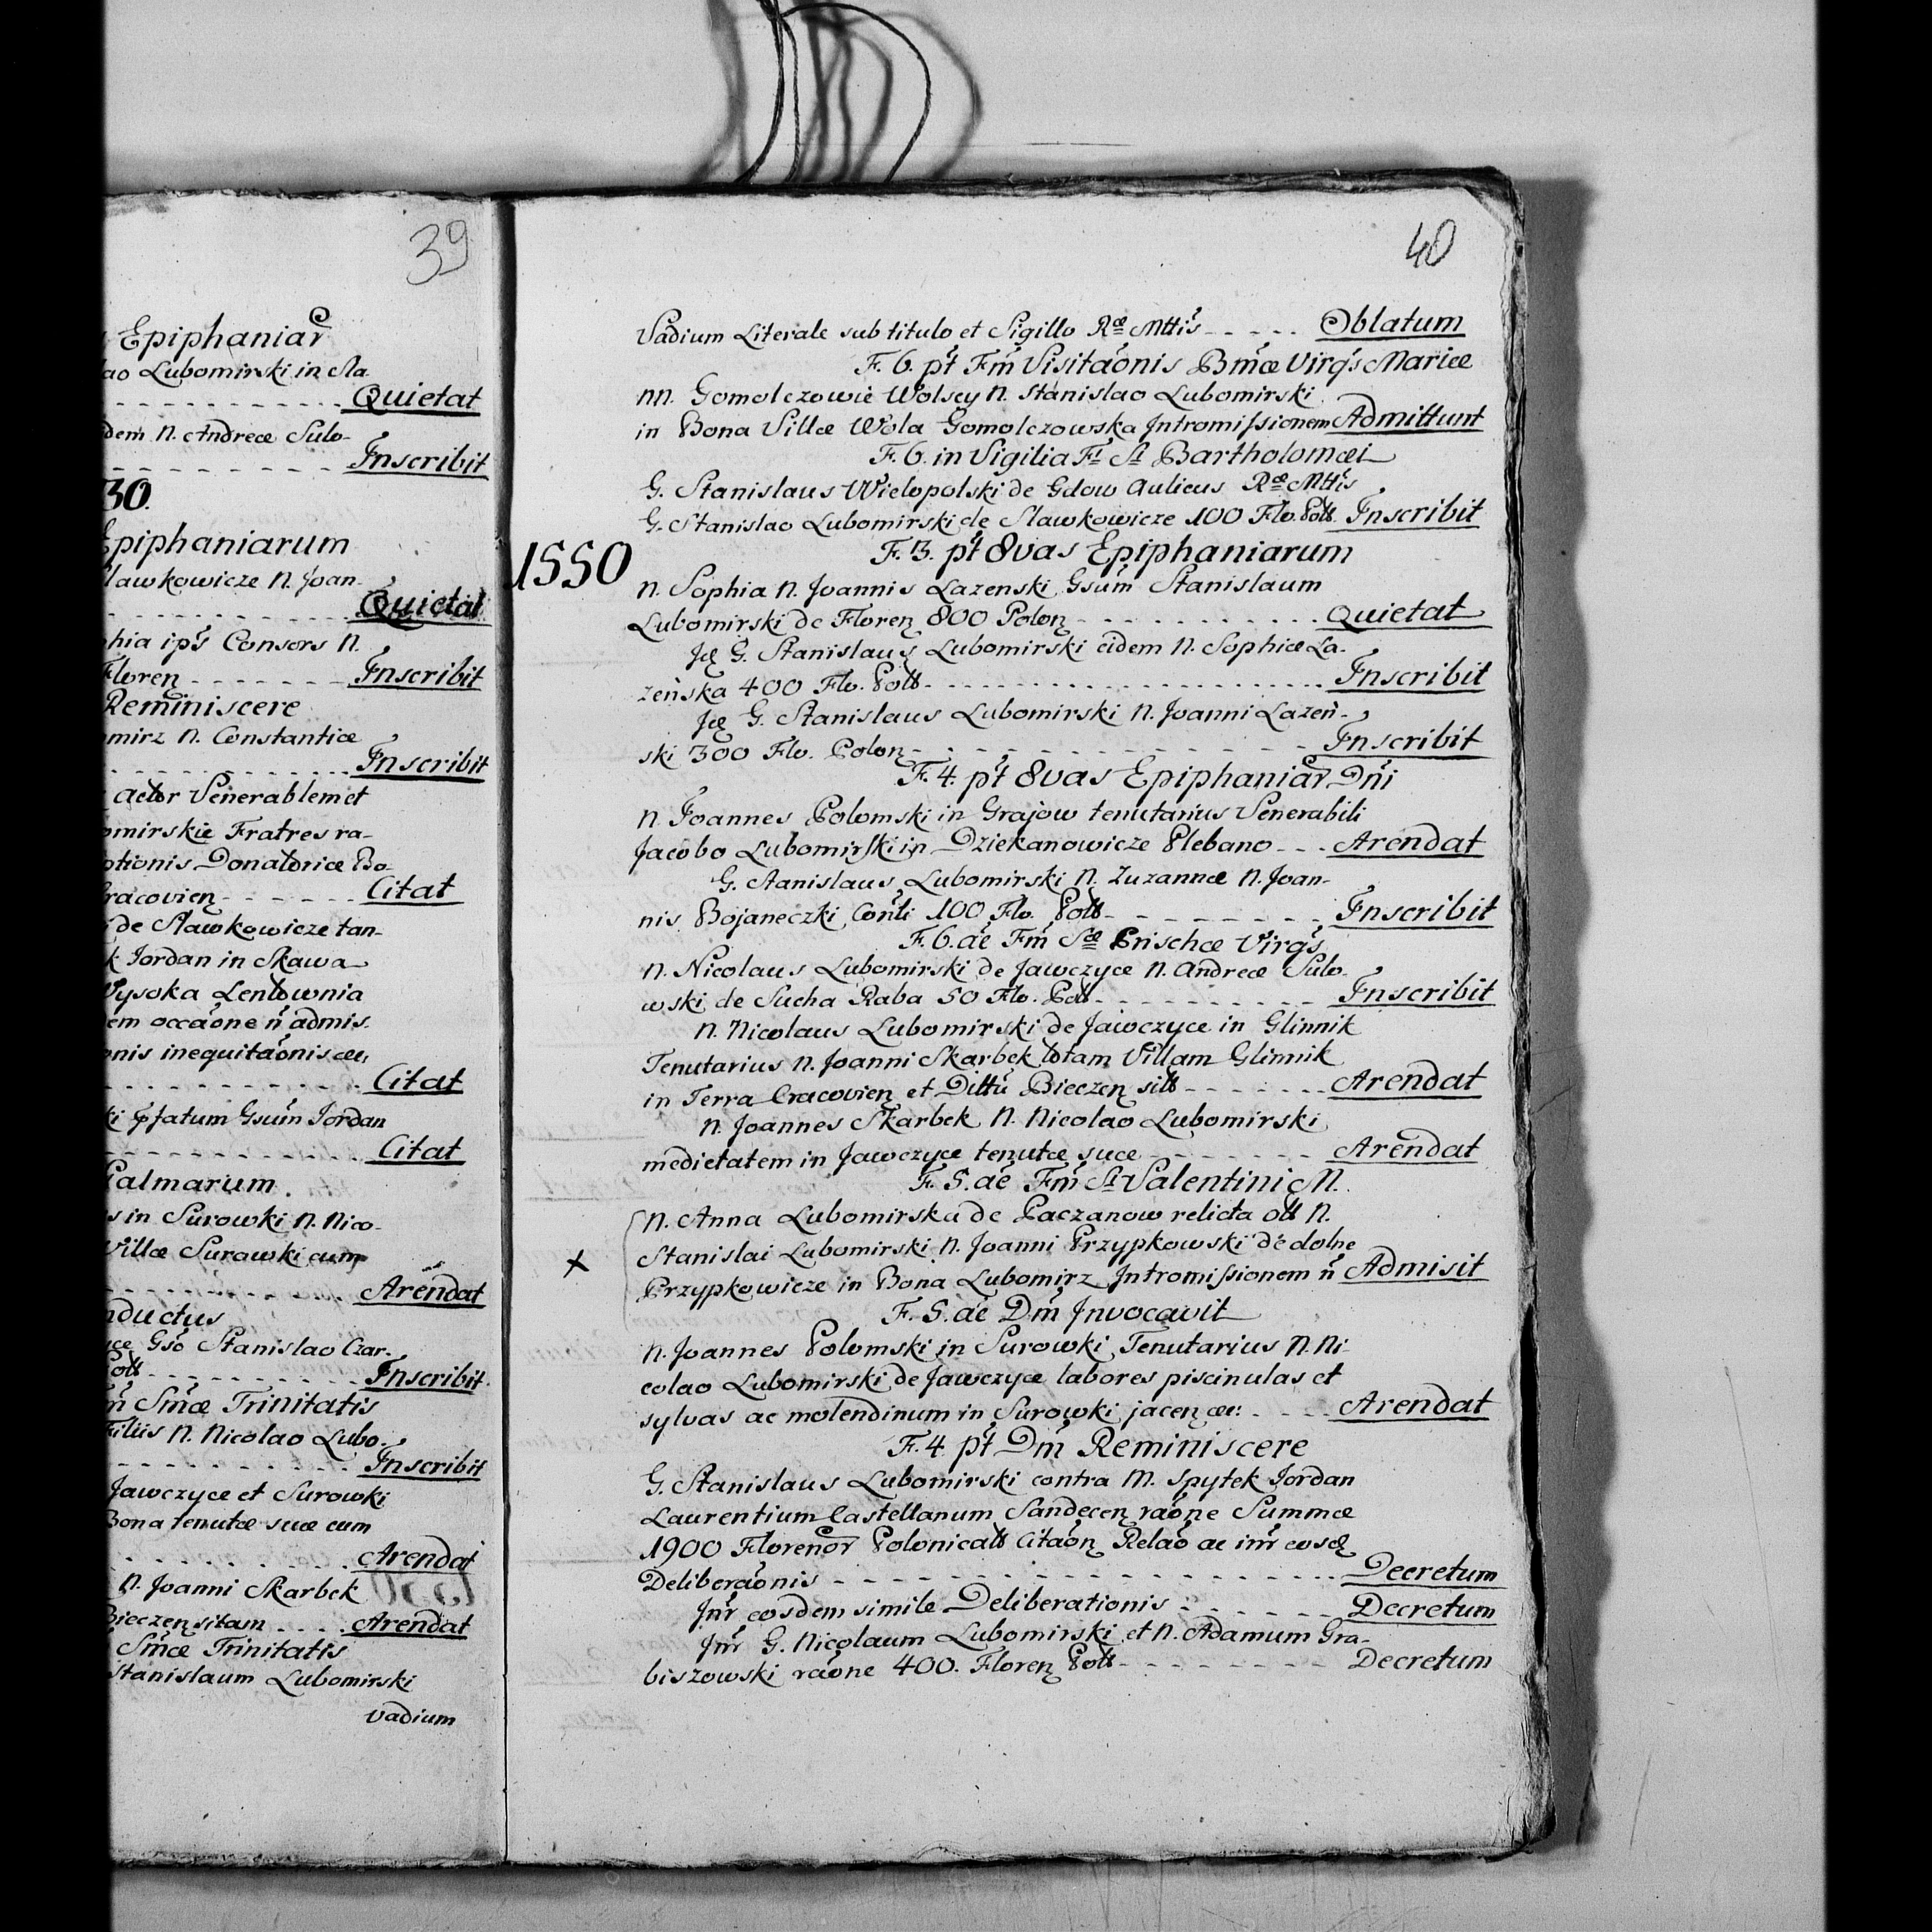 39
Epiphaniar
ao Lubomirski in Sla
Quietat
dem N. Andreæ Sulo-
Inscribit
30.
Epiphaniarum
lawkowicze N. Joan-
Quietat
phia ips Consors N.
Floren Inscribit
Reminiscere
omirz N. Constantiæ
Inscribit
actor Venerablem et
omirskie Fratres ra-
ptionis Donatoriæ Bo-
racovien Citat
de Slawkowicze tan-
k Jordan in Skawa
Wysoka Lentownia
em occaone n admis.
onis inequitaonis
Citat
ki fatum Gsum Jordan
Citat
Palmarum.
s in Surowki N. Nico-
Villæ Surowski cum
Arendat
nductus
Gso Stanislao Czar-
Inscribit
Smæ Trinitatis
Filiis N. Nicolao Lubo-
Inscribit
Jawczyce et Surowki
Bona tenutæ suæ cum
Arendat
N. Joanni Skarbek
Bieczen sitam Arendat
Smæ Trinitatis
Stanislaum Lubomirski
Vadium
40
Vadium Literale sub titulo et Sigillo Ræ Mttis - - - - - Oblatum
F. 6. pt Fm Visitaonis Bmæ Virgs Mariæ
NN. Gomolczowie Wolscy N. Stanislao Lubomirski
in Bona Villæ Wola Gomolczowska Intromissionem Admittunt
F. 6. in Vigilia Fi Sti Bartholomæi
G. Stanislaus Wielopolski de Gdow Aulicus Ræ Mttis
G. Stanislao Lubomirski de Slawkowicze 100 Flo. Poll. Inscribit
1550
F. 3. pt 8vas Epiphaniarum
N. Sophia N. Joannis Lazenski Gsum Stanislaum
Lubomirski de Floren 800 Polon - - - - - - - - - - Quietat
G. Stanislaus Lubomirski eidem N. Sophiæ La-
zeńska 400 Flo. Poll - - - - - - - - - - Inscribit
G. Stanislaus Lubomirski N. Joanni Lazeń-
ski 300 Flo. Polon - - - - - - - - - - Inscribit
F. 4. pt 8vas Epiphaniar Dni
N. Joannes Polomski in Grajow tenutarius Venerabili
Jacobo Lubomirski in Dziekanowicze Plebano - - - Arendat
G. Stanislaus Lubomirski N. Zuzannæ N. Joan-
nis Bojaneczki Conti 100 Flo. Poll - - - - - - - - Inscribit
F. 6. ae Fm Sæ Prischæ Virgs
N. Nicolaus Lubomirski de Jawczyce N. Andreæ Sulo-
wski de Sucha Raba 50 Flo. Poll - - - - - - - - - Inscribit
N. Nicolaus Lubomirski de Jawczyce in Glinnik
Tenutarius N. Joanni Skarbek totam Villam Glinnik
in Terra Cracovien et Dittu Bieczen sitt - - - - - - - Arendat
N. Joannes Skarbek N. Nicolao Lubomirski
medietatem in Jawczyce tenutæ suæ - - - - - - - Arendat
F. 5. ae Fm Sti Valentini M.
N. Anna Lubomirska de Paczanow relicta oll N.
x
Stanislai Lubomirski N. Joanni Przypkowski de dolne
Przypkowicze in Bona Lubomirz Intromissionem n Admisit
F. 5. ae Dm Invocavit
N. Joannes Polomski in Surowki Tenutarius N. Ni-
colao Lubomirski de Jawczyce labores piscinulas et
sylvas ac molendinum in Surowki jacen - - - - Arendat
F. 4. pt Dm Reminiscere
G. Stanislaus Lubomirski contra M. Spytek Jordan
Laurentium Castellanum Sandecen raone Summæ
1900 Florenor Polonicalt Citaon Relao ac inr eosd
Deliberaonis - - - - - - - - - - Decretum
Inr eosdem simile Deliberationis - - - - - - Decretum
Inr G. Nicolaum Lubomirski et N. Adamum Gra-
biszowski raone 400. Floren Poll - - - - - - - - Decretum